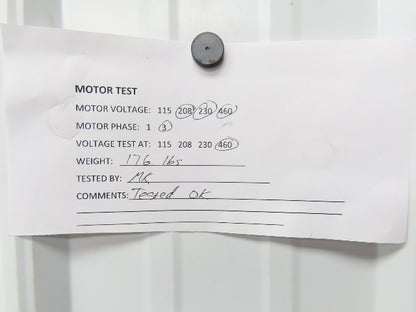 MOTOR TEST
MOTOR VOLTAGE: 115 208 230 460
MOTOR PHASE: 1 3
VOLTAGE TEST AT: 115 208 230 460
WEIGHT: 176 lbs
TESTED BY: MK
COMMENTS: Tested OK